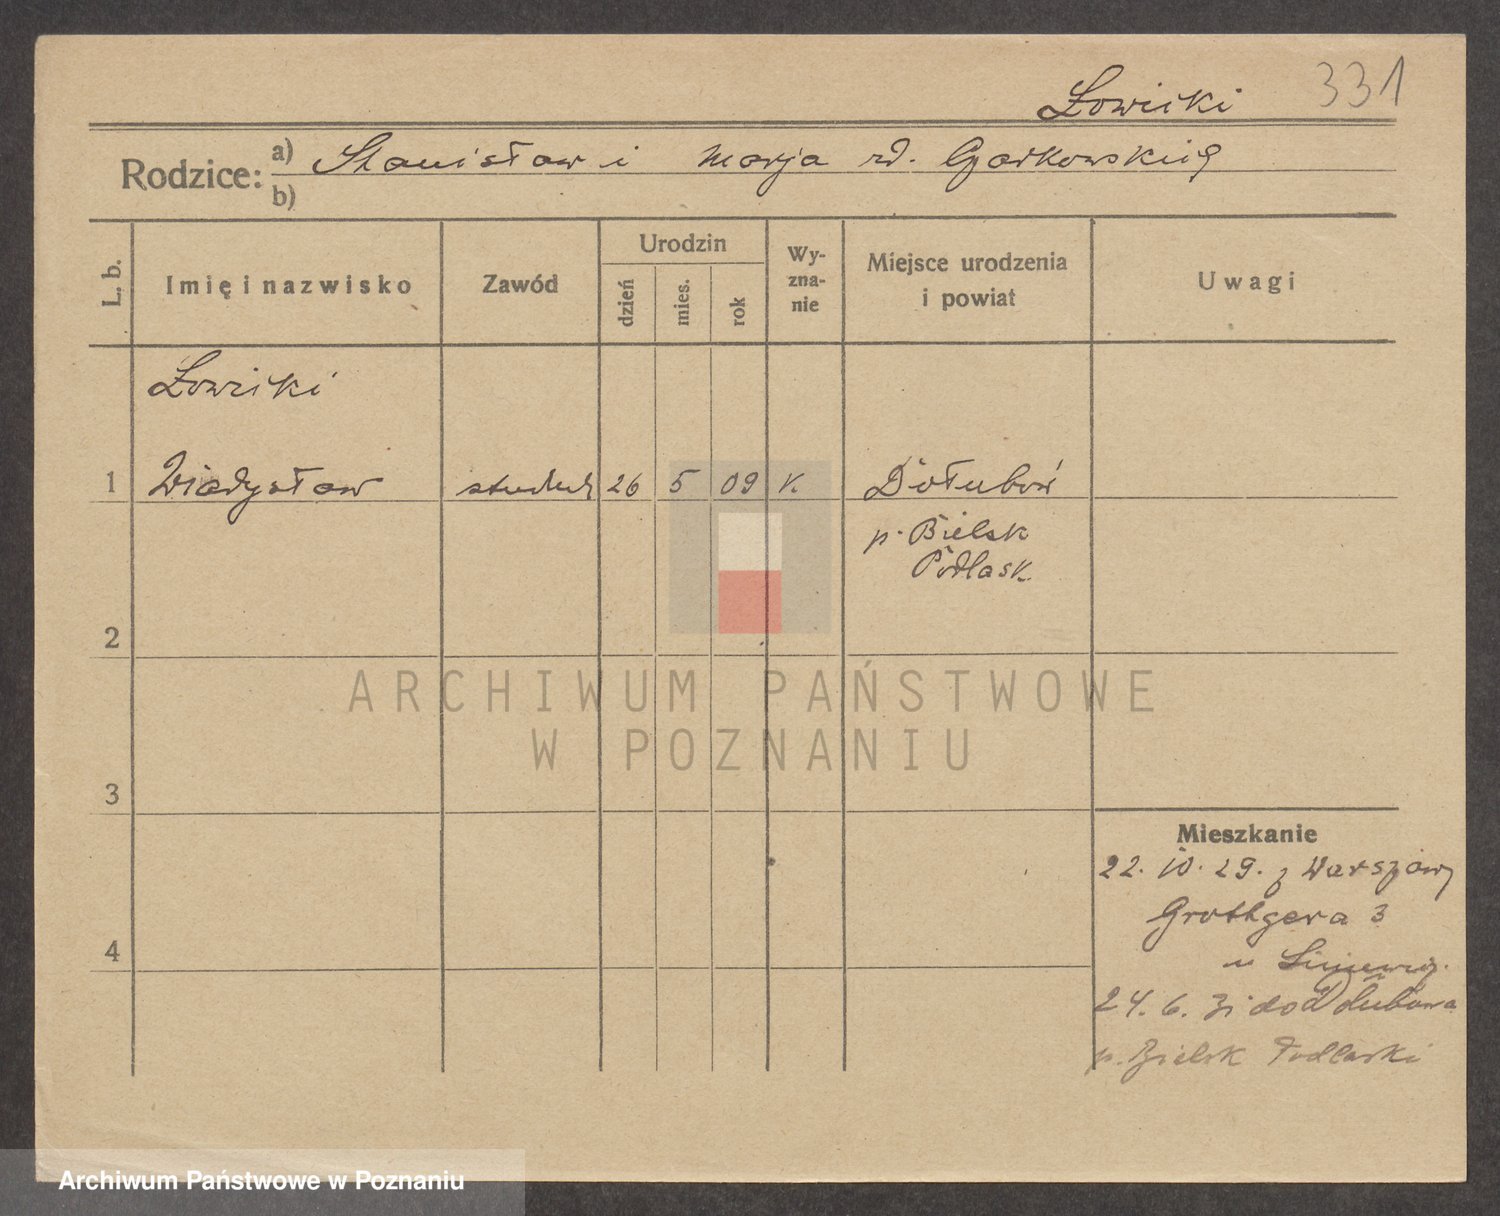 Łowicki 331
Rodzice: a) Stanisław i Marja rd. Czarkowskich
b)
L. b. Imię i nazwisko Zawód Urodzin dzień mies. rok Wy-zna-nie Miejsce urodzenia i powiat Uwagi
Łowicki
1 Władysław student 26 5 09 K. Dołubów
p. Bielsk
Podlask.
2
ARCHIWUM PAŃSTWOWE
W POZNANIU
3
Mieszkanie
22. 10. 29. z Warszawy
Grottgera 3
4
u
24. 6. 31 do Dołubowa
p. Bielsk Podlaski
Archiwum Państwowe w Poznaniu